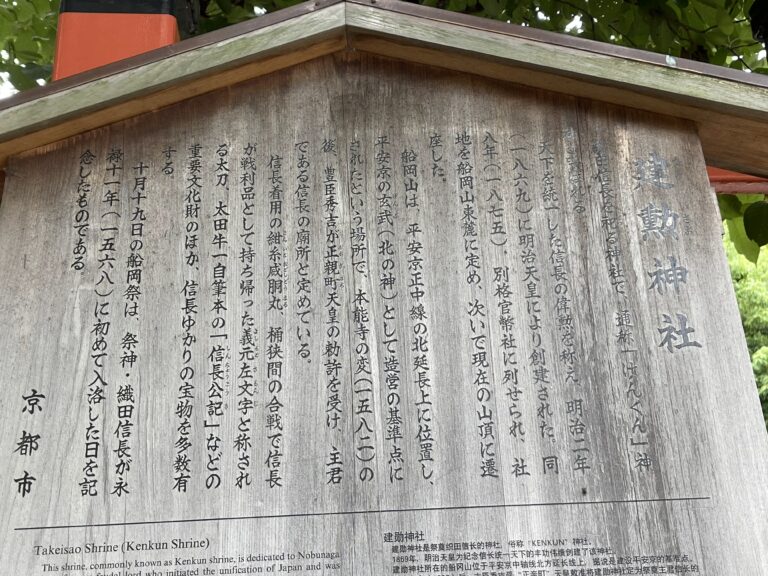 建勲神社
織田信長を祀る神社で、通称「けんくん」神
社と呼ばれる。
天下を統一した信長の偉勲を称え、明治二年
(一八六九)に明治天皇により創建された。同
八年(一八七五)、別格官幣社に列せられ、社
地を船岡山東麓に定め、次いで現在の山頂に遷
座した。
船岡山は、平安京正中線の北延長上に位置し、
平安京の玄武(北の神)として造営の基準点に
されたという場所で、本能寺の変(一五八二)の
後、豊臣秀吉が正親町天皇の勅許を受け、主君
である信長の廟所と定めている。
信長着用の紺糸威胴丸、桶狭間の合戦で信長
が戦利品として持ち帰った義元左文字と称され
る太刀、太田牛一自筆本の「信長公記」などの
重要文化財のほか、信長ゆかりの宝物を多数有
する。
十月十九日の船岡祭は、祭神・織田信長が永
禄十一年(一五六八)に初めて入洛した日を記
念したものである。
京都市
Takeisao Shrine (Kenkun Shrine)
This shrine, commonly known as Kenkun shrine, is dedicated to Nobunaga
feudal lord who initiated the unification of Japan and was
建勋神社
建勋神社是祭奠织田信长的神社，俗称"KENKUN"神社。
1869年，明治天皇为纪念信长统一天下的丰功伟绩创建了该神社。
建勋神社所在的船冈山位于平安京中轴线北方延长线上，据说是建设平安京的基准点。